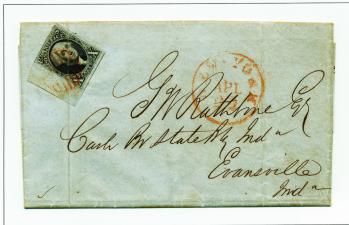 NEW-YORK
JUL
G W Rathbone Esq
Cash Br State Bk Inda
Evansville
Inda